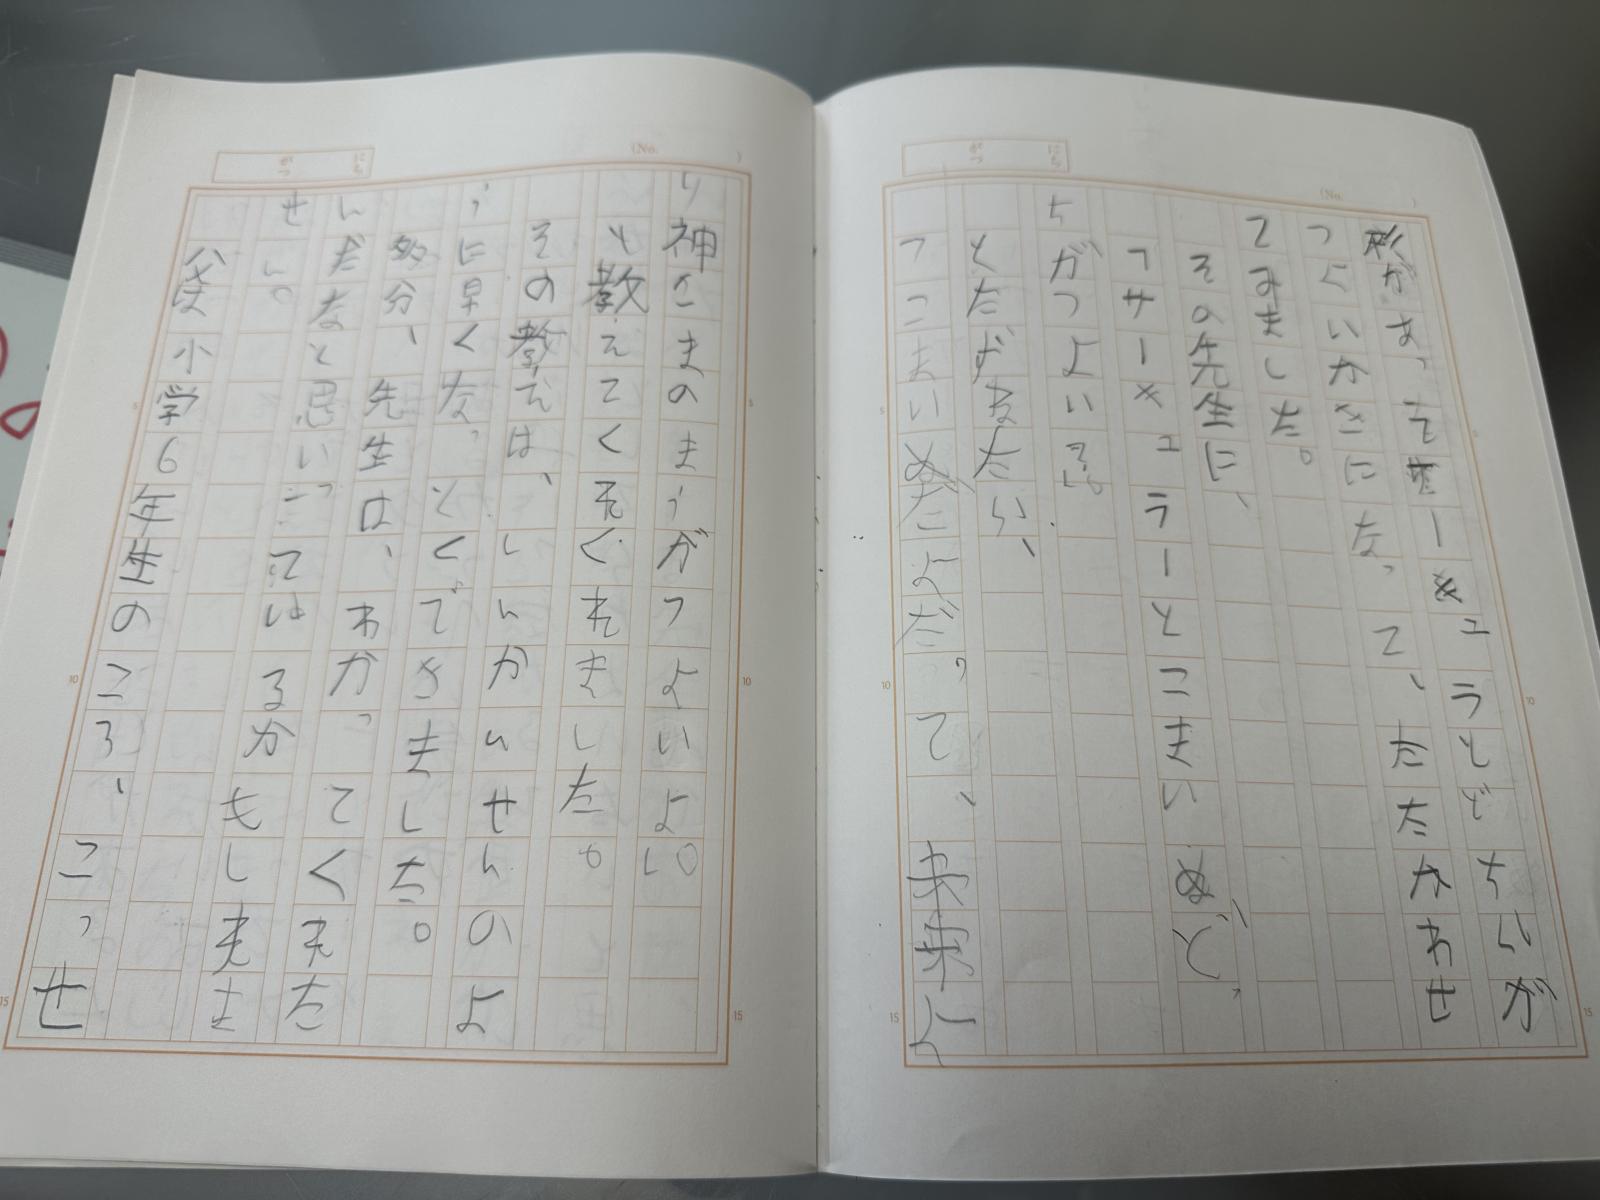 があってサーキュラとどちらが
つよいかきになって、たたかわせ
てみました。
その先生に、
「サーキュラーとこまいぬ、どっ
ちがつよい。」
とたずねたら、
「こまいぬだよだって、未来よ
り神さまのほうがつよいよ。」
と教えてくれました。
その教えは、しんかんせんのよ
うに早くなっとくできました。
多分、先生は、わかってくれた
んだなと思いこっているかもしれま
せん。
父は小学6年生のころ、こっせ